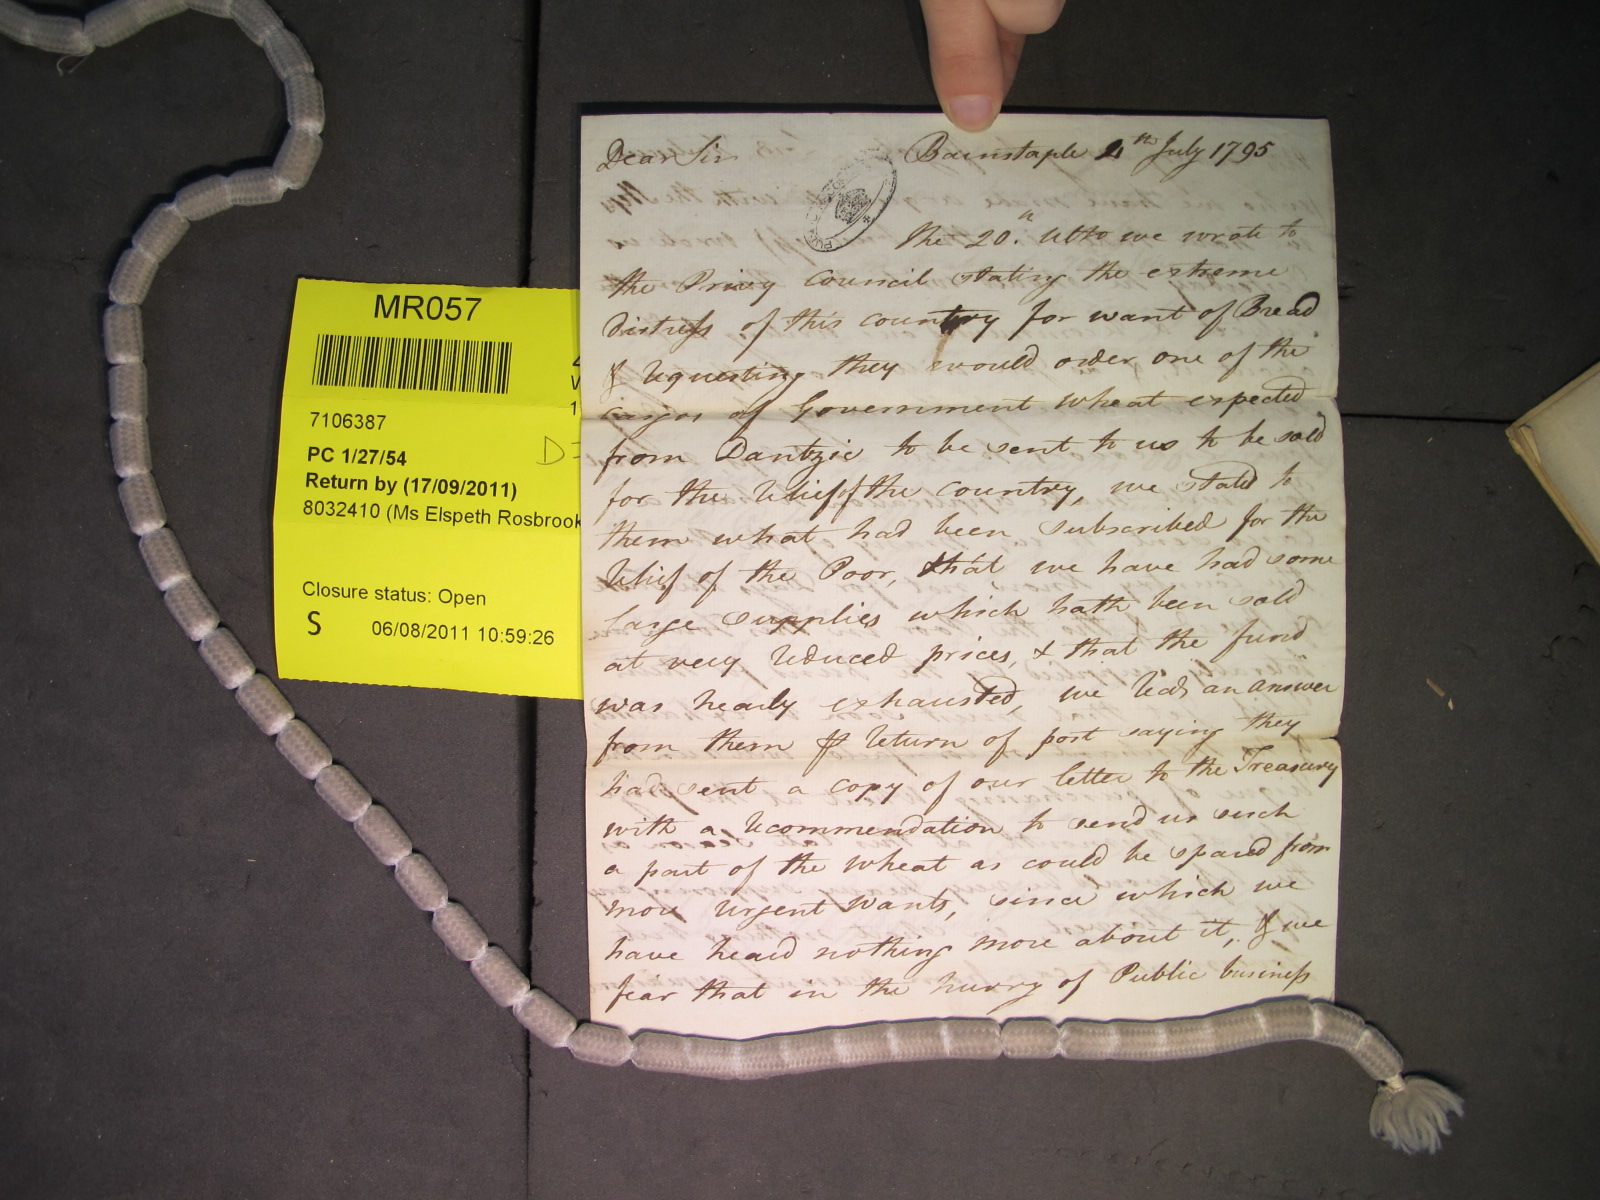 MR057
7106387
PC 1/27/54
Return by (17/09/2011)
8032410 (Ms Elspeth Rosbrook
Closure status: Open
S 06/08/2011 10:59:26
Dear Sir Barnstaple 4th July 1795
The 20th Ulto we wrote to
the Privy Council stating the extreme
Distress of this country for want of Bread
& requesting they would order one of the
cargos of Government wheat expected
from Dantzic to be sent to us to be sold
for the relief of the country, we stated to
them what had been subscribed for the
relief of the Poor, that we have had some
large supplies which hath been sold
at very reduced prices, & that the fund
was nearly exhausted, we had an answer
from them P return of post saying they
had sent a copy of our letter to the Treasury
with a recommendation to send us such
a part of the wheat as could be spared from
more urgent wants, since which we
have heard nothing more about it, & we
fear that in the hurry of Public business